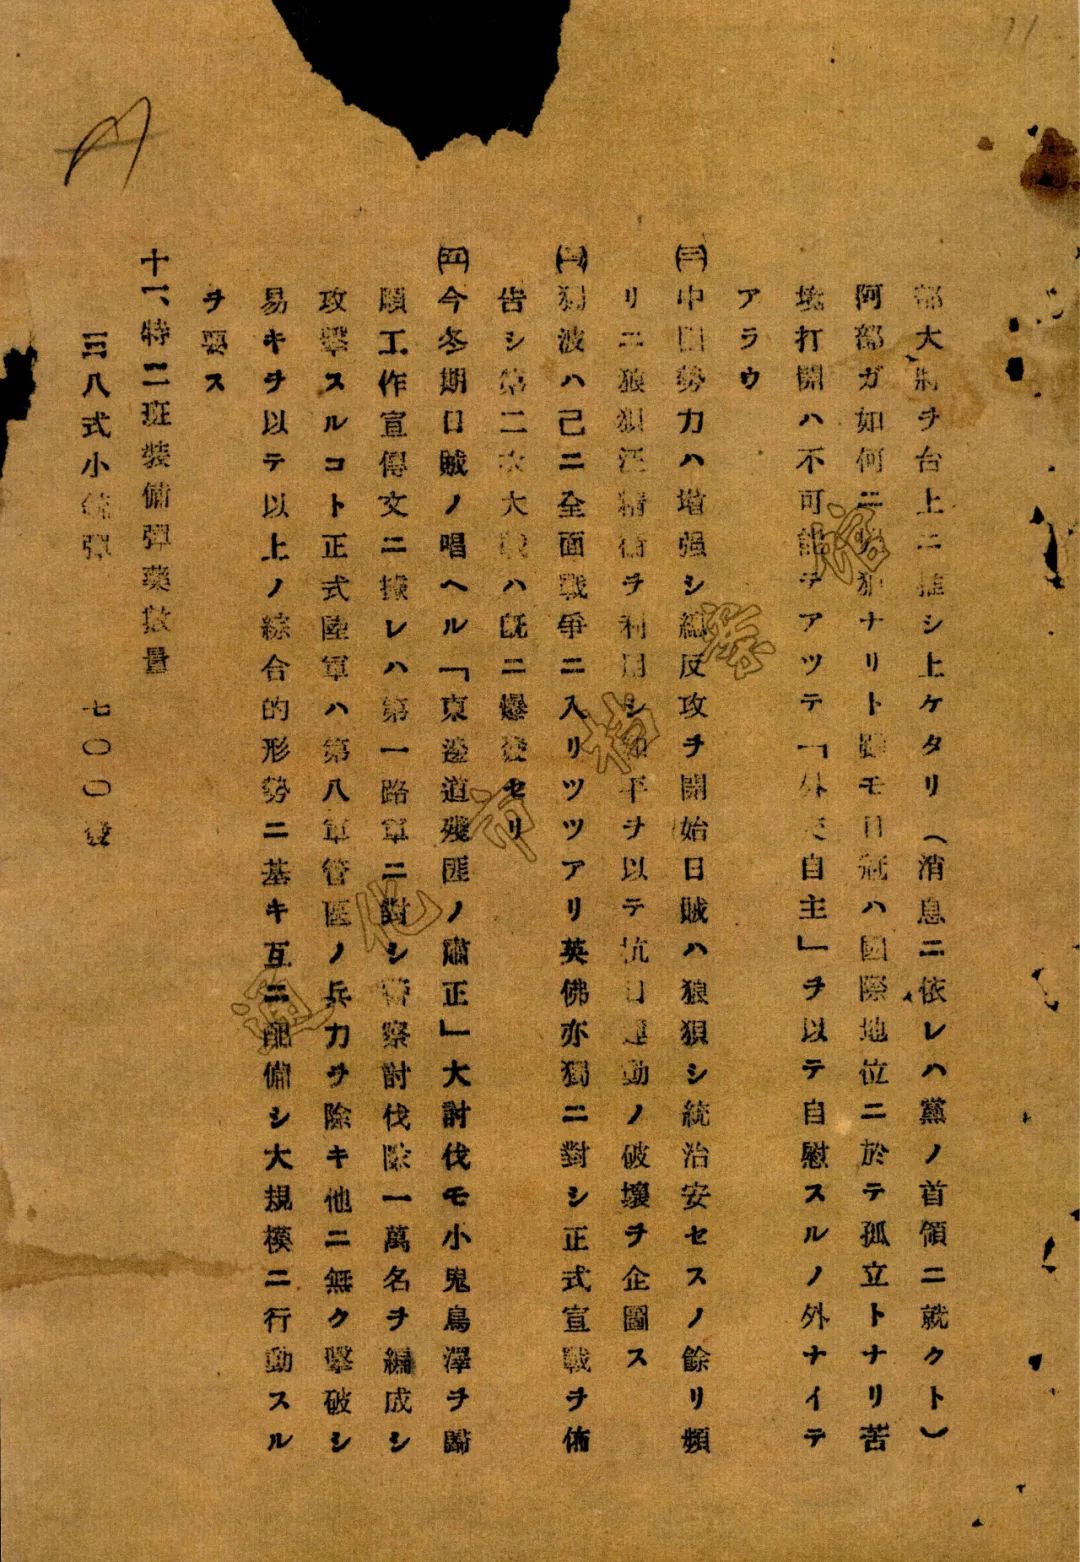 部大將ヲ台上ニ推シ上ケタリ(消息ニ依レハ黨ノ首領ニ就クト)
阿部ガ如何ニ ナリト雖モ日冦ハ國際地位ニ於テ孤立トナリ苦
境打開ハ不可能テアツテ「外交自主」ヲ以テ自慰スルノ外ナイテ
アラウ
㈢中国勢力ハ增强シ總反攻ヲ開始日賊ハ狼狽シ統治安セスノ餘リ頻
リニ狼狽汪精衛ヲ利用シ和平ヲ以テ抗日運動ノ破壞ヲ企圖ス
獨波ハ己ニ全面戰爭ニ入リツツアリ英佛亦獨ニ對シ正式宣戰ヲ佈
告シ第二次大戰ハ旣ニ爆發セリ
㈤今冬期日賊ノ唱ヘル「東邊道殘匪ノ肅正」大討伐モ小鬼鳥澤ヲ歸
順工作宣傳文ニ據レハ第一路軍ニ對シ警察討伐隊一萬名ヲ編成シ
攻擊スルコト正式陸軍ハ第八軍管區ノ兵力ヲ除キ他ニ無ク擊破シ
易キヲ以テ以上ノ綜合的形勢ニ基キ互ニ配備シ大規模ニ行動スル
ヲ要ス
十一、特二班裝備彈藥數量
三八式小銃彈 七〇〇發
通化市档案馆
11